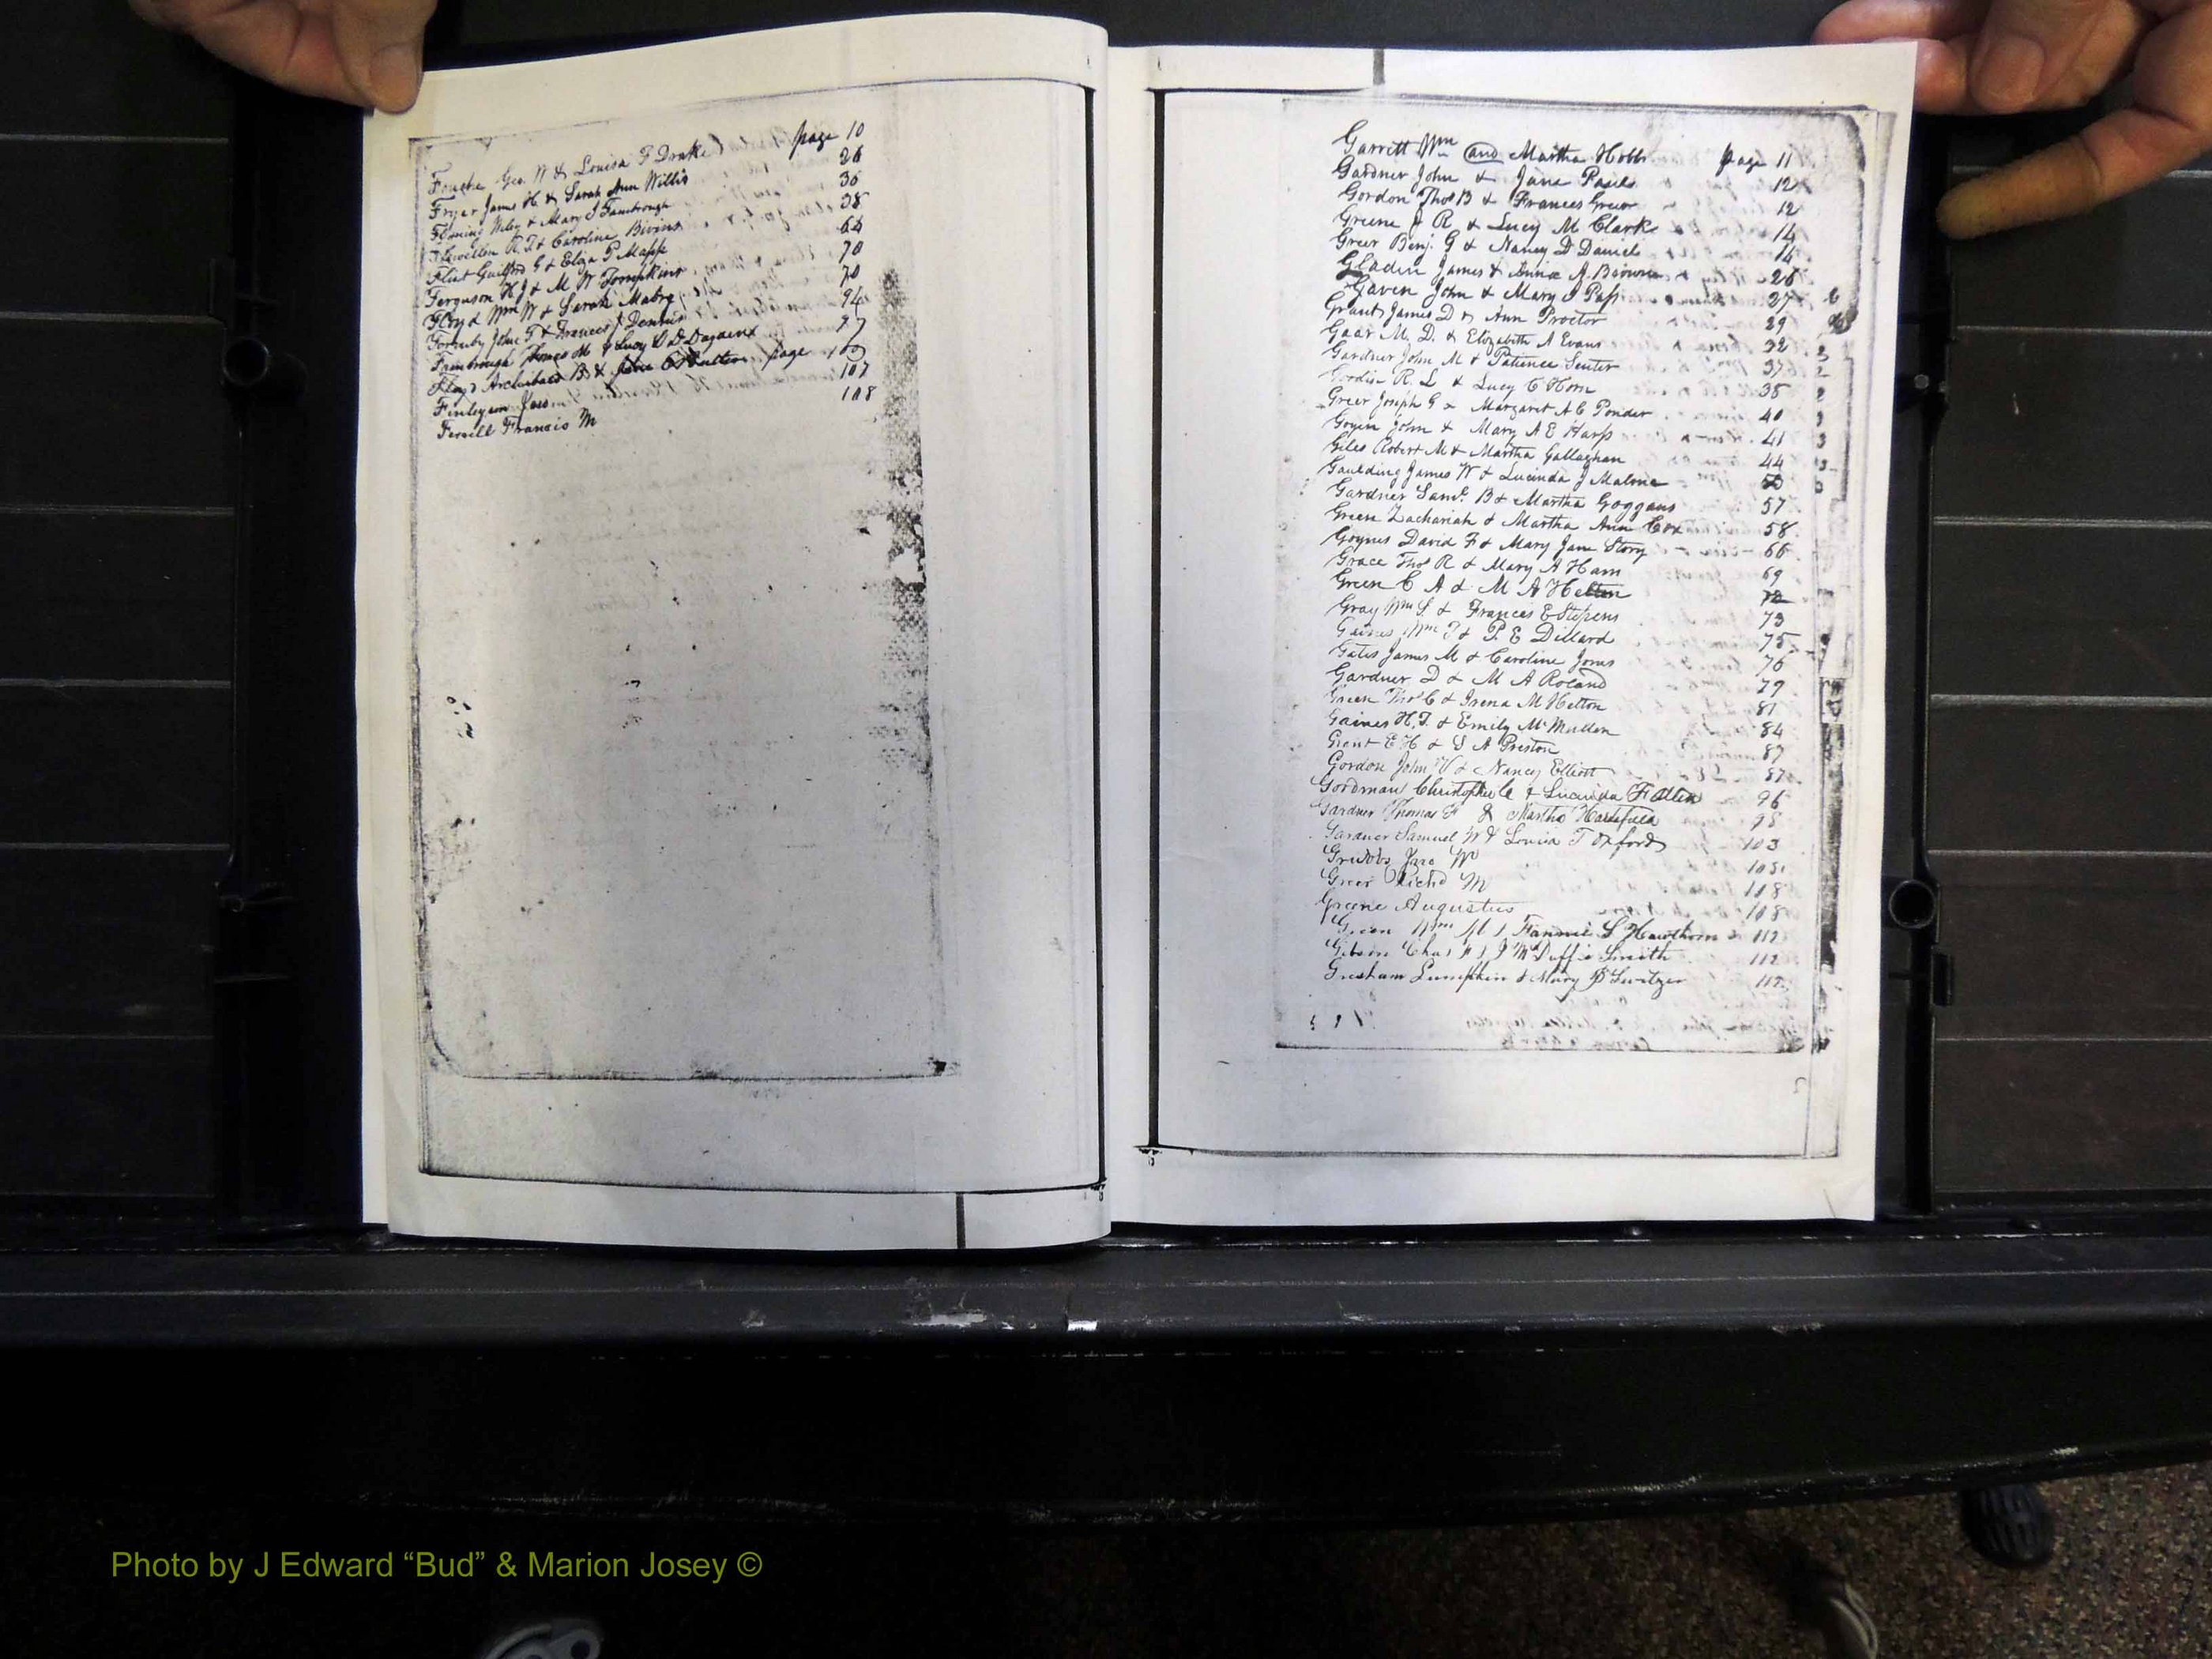 Fouche Geo. W & Louisa F Drake page 10
Fryer James H & Sarah Ann Willis 26
Fleming Wiley & Mary J Fambrough 36
Flewellen R. T. & Caroline Bivins 38
Flint Guilford G & Eliza P Mapp 64
Ferguson H J & M W Tompkins 70
Floyd Wm W & Sarah Mabry 70
Formby John F & Frances J Dennis 94
Fambrough Thomas M & Lucy 97
Floyd Archibald B & page
Finleyson Jas 107
Ferrill Francis M 108
Garrett Wm and Martha Hobbs page 11
Gardner John & Jane 12
Gordon Thos B & Frances Greer 12
Greene J R & Lucy M Clark 14
Greer Benj. G & Nancy D Daniel 14
Gladin James & Annie A. Browne 26
Gaven John & Mary J Pass 27
Grant James D & Ann Proctor 29
Gaar M. D. & Elizabeth A Evans 32
Gardner John M & Patience Senter 37
R. L & Lucy C Horn 38
Greer Joseph G & Margaret A C Ponder 40
Goyen John & Mary A E Harp 41
Giles Robert M & Martha Gallaghan 44
Gaulding James W & Lucinda J Malone 50
Gardner Saml. B & Martha Goggans 57
Green Zachariah & Martha Ann Cox 58
Goynes David F & Mary Jane Story 66
Grace Thos R & Mary A Ham 69
Green C A & M A Helton 72
Gray Wm S. & Frances E Stepens 73
Gaines Wm T & P. E Dillard 75
Gates James M & Caroline Jones 76
Gardner D & M A Roland 79
Green Thos C & Irena M Helton 81
Gaines H. T. & Emily McMullen 84
Grant E H & S A Preston 87
Gordon John W & Nancy Elliott 87
Gordman Christopher C & Lucinda F Allen 96
Gardner Thomas F & Martha Hartsfield 98
Gardner Samuel W & Louisa T Oxford 103
Grubbs Jno W 105
Greer Richd M 118
Greene Augustus 108
Green Wm M & Fannie S Hawthorn 112
Gibson Chas & J McDuffie Smith 112
Gresham Lumpkin & Mary B Switzer 112
Photo by J Edward “Bud” & Marion Josey ©